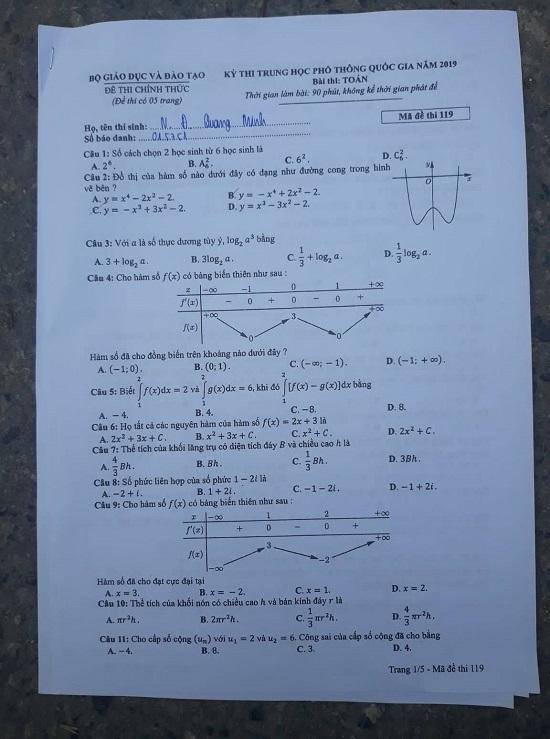 BỘ GIÁO DỤC VÀ ĐÀO TẠO KỲ THI TRUNG HỌC PHỔ THÔNG QUỐC GIA NĂM 2019
ĐỀ THI CHÍNH THỨC Bài thi: TOÁN
(Đề thi có 05 trang) Thời gian làm bài: 90 phút, không kể thời gian phát đề
Mã đề thi 119
Họ, tên thí sinh: N. Đ. Quang Minh
Số báo danh:
Câu 1: Số cách chọn 2 học sinh từ 6 học sinh là
A. 2⁶. B. A₆². C. 6². D. C₆².
Câu 2: Đồ thị của hàm số nào dưới đây có dạng như đường cong trong hình
vẽ bên ?
A. y = x⁴ − 2x² − 2. B. y = −x⁴ + 2x² − 2.
C. y = −x³ + 3x² − 2. D. y = x³ − 3x² − 2.
y
O x
Câu 3: Với a là số thực dương tùy ý, log₂ a³ bằng
A. 3 + log₂ a. B. 3log₂ a. C. 1/3 + log₂ a. D. 1/3 log₂ a.
Câu 4: Cho hàm số f(x) có bảng biến thiên như sau :
x −∞ −1 0 1 +∞
f'(x) − 0 + 0 − 0 +
f(x) +∞ 0 3 0 +∞
Hàm số đã cho đồng biến trên khoảng nào dưới đây ?
A. (−1; 0). B. (0; 1). C. (−∞; −1). D. (−1; +∞).
Câu 5: Biết ∫₁² f(x)dx = 2 và ∫₁² g(x)dx = 6, khi đó ∫₁² [f(x) − g(x)]dx bằng
A. −4. B. 4. C. −8. D. 8.
Câu 6: Họ tất cả các nguyên hàm của hàm số f(x) = 2x + 3 là
A. 2x² + 3x + C. B. x² + 3x + C. C. x² + C. D. 2x² + C.
Câu 7: Thể tích của khối lăng trụ có diện tích đáy B và chiều cao h là
A. 4/3 Bh. B. Bh. C. 1/3 Bh. D. 3Bh.
Câu 8: Số phức liên hợp của số phức 1 − 2i là
A. −2 + i. B. 1 + 2i. C. −1 − 2i. D. −1 + 2i.
Câu 9: Cho hàm số f(x) có bảng biến thiên như sau :
x −∞ 1 2 +∞
f'(x) + 0 − 0 +
f(x) −∞ 3 −2 +∞
Hàm số đã cho đạt cực đại tại
A. x = 3. B. x = −2. C. x = 1. D. x = 2.
Câu 10: Thể tích của khối nón có chiều cao h và bán kính đáy r là
A. πr²h. B. 2πr²h. C. 1/3 πr²h. D. 4/3 πr²h.
Câu 11: Cho cấp số cộng (uₙ) với u₁ = 2 và u₂ = 6. Công sai của cấp số cộng đã cho bằng
A. −4. B. 8. C. 3. D. 4.
Trang 1/5 - Mã đề thi 119